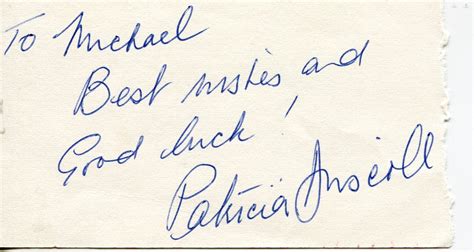 To Michael
Best wishes and
Good luck !
Patricia Driscoll